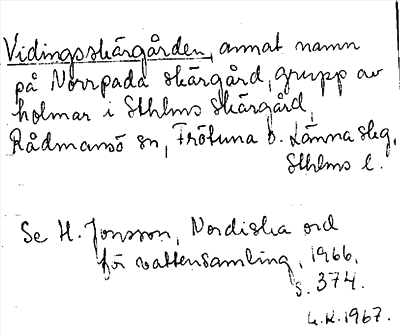 Vidingsskärgården, annat namn
på Norrpada skärgård, grupp av
holmar i Sthlms skärgård,
Rådmansö sn, Frötuna o. Länna skg,
Sthlms l.
Se H. Jonsson, Nordiska ord
för vattensamling, 1966,
s. 374.
L.K. 1967.